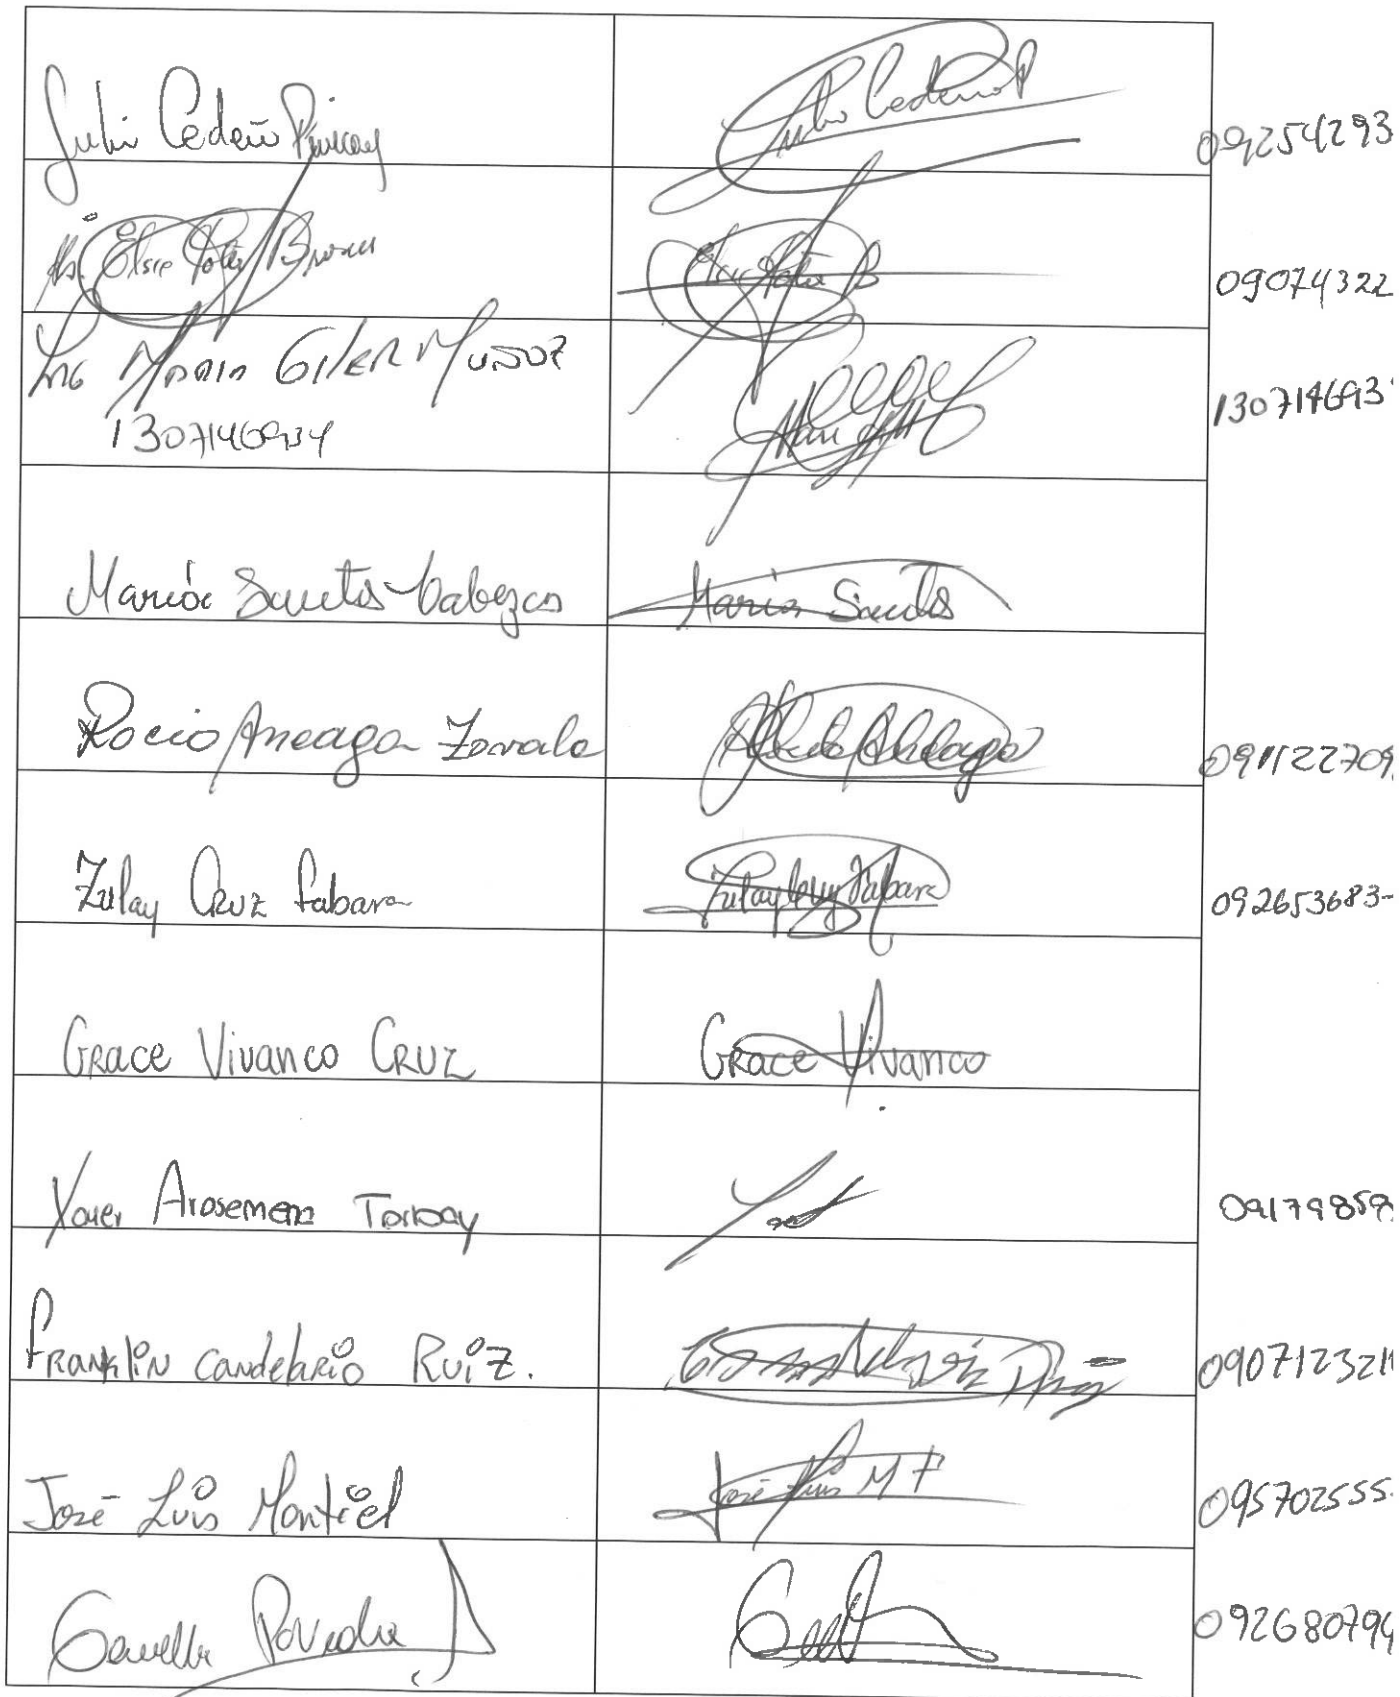 Julio Cedeño Pincay Julio Cedeño P 09254293
Ab. Elsie Bravo 09074322
Ing Maria Giler Muñoz 130714693
1307146934
Maria Santos Cabezas Maria Santos
Rocio Arreaga Zavala Arreaga 091122709
Zulay Cruz Fabara Zulay Cruz Fabara 092653683
Grace Vivanco Cruz Grace Vivanco
Xavier Arosemena Torbay 09179858
Franklin Candelario Ruiz. 090712321
José Luis Montiel José Luis M F 095702555
Poveda 092680794